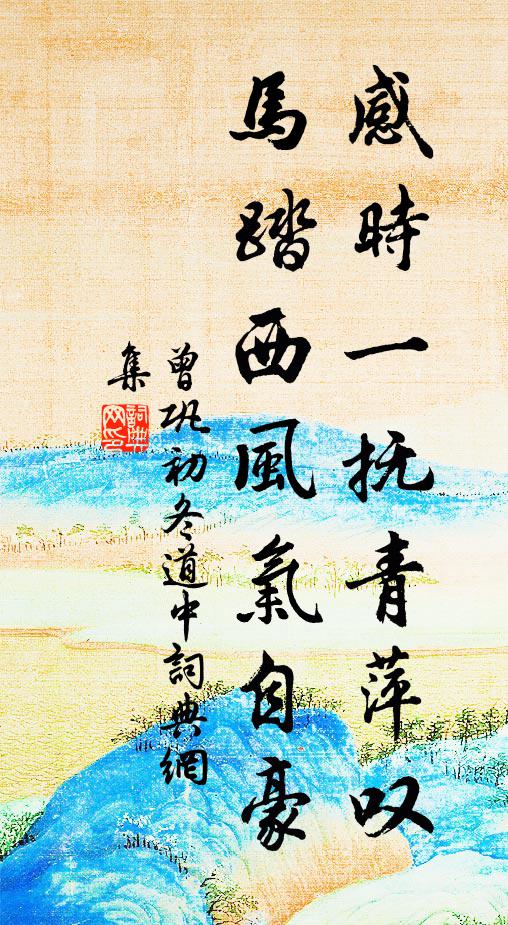 感時一抚青萍叹
馬踏西風氣自豪
曾巩初冬道中詞典網
集
詞典網印